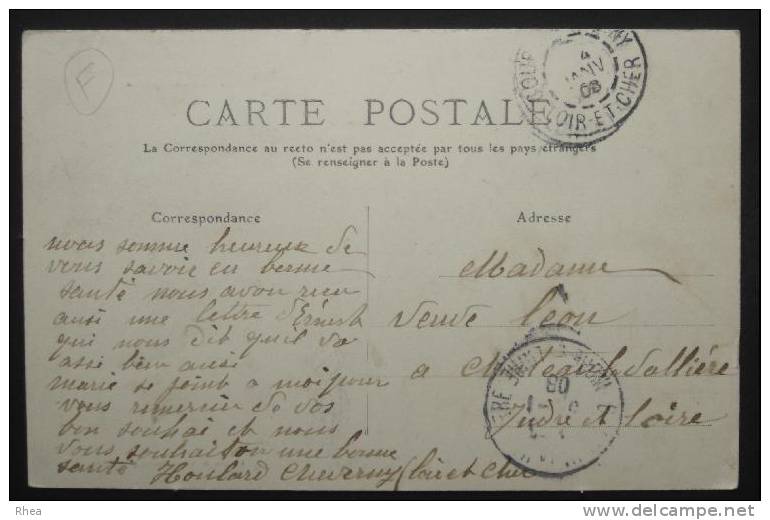 F
4
JANV
08
LOIR-ET-CHER
CARTE POSTALE
La Correspondance au recto n'est pas acceptée par tous les pays étrangers
(Se renseigner à la Poste)
Correspondance
Adresse
nous somme heureux de
vous savoir en bonne
santé nous avon recu
ausi une lettre d'Ernest
qui nous dit quil va
assé bien ausi
marie se joint a moi pour
vous remercier de vos
bon souhai et nous
vous souhaiton une bonne
santé Houlard Cheverny (loir et Cher
Madame
veuve Léon
a Chateau la Vallière
Indre et Loire
Rhea
delcampe.net